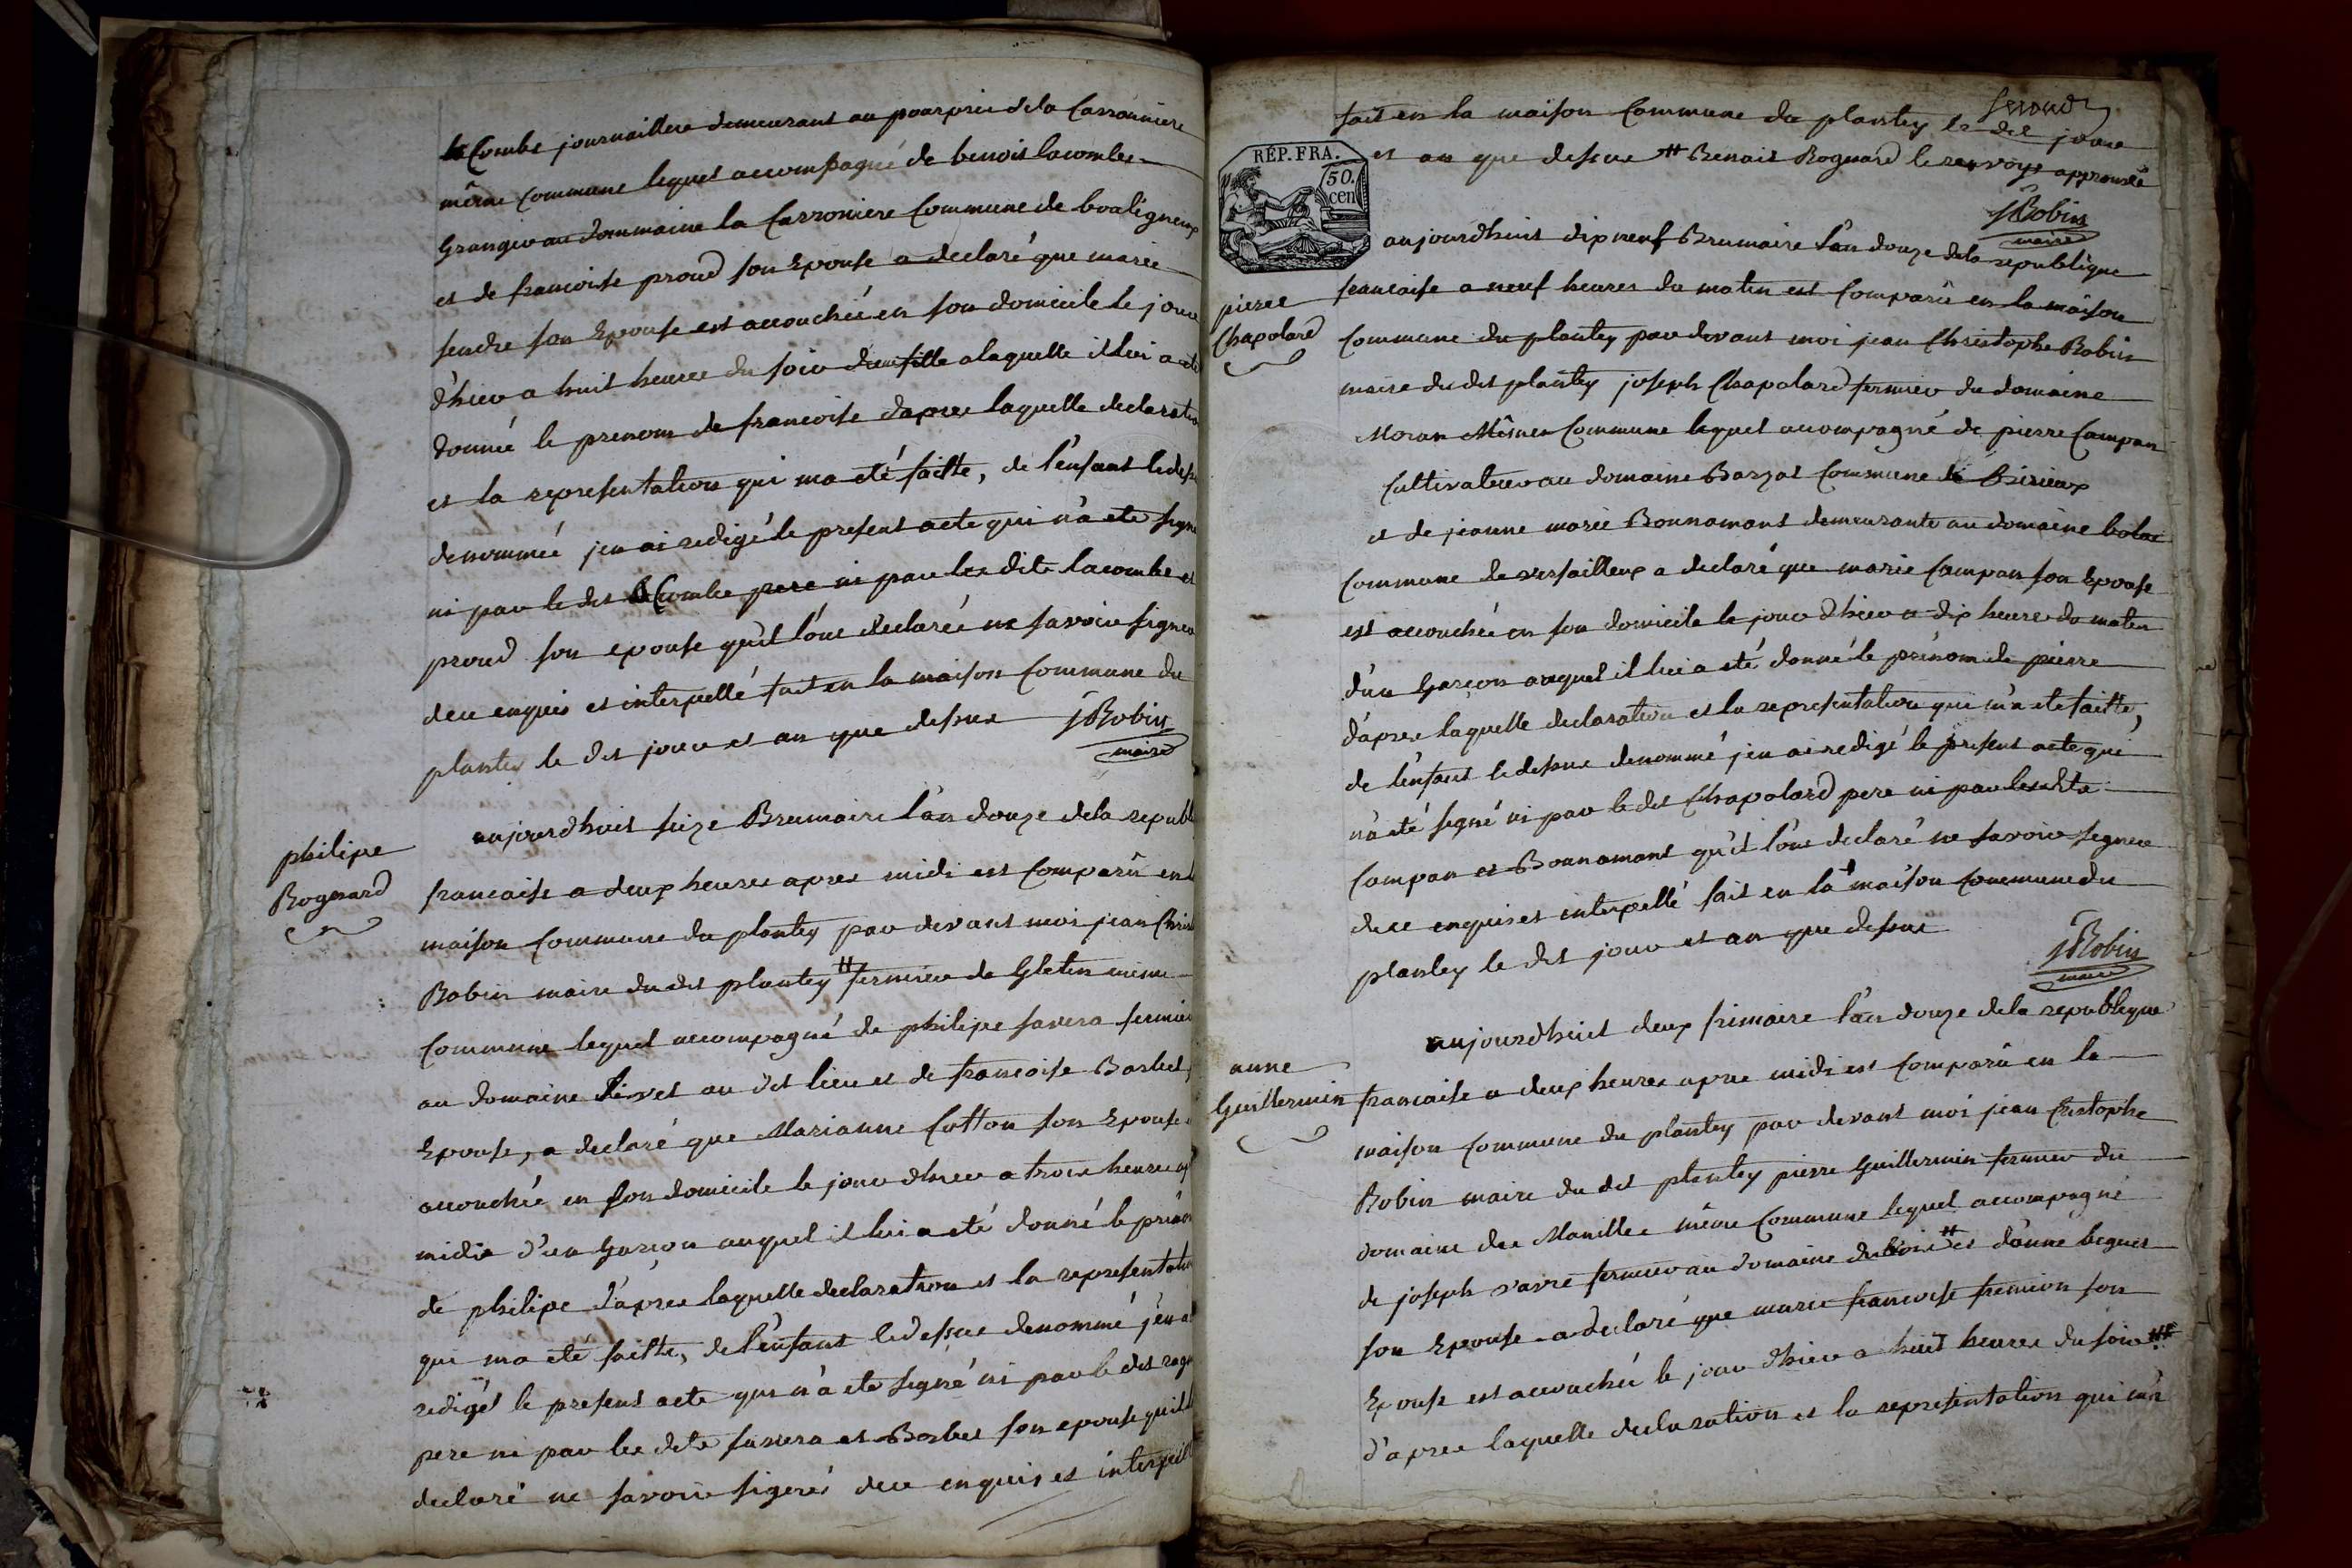 la Combe journaillere demeurant au pourprix dela Carronniere
même Commune lequel accompagné de benois lacombe
Granger au dommaine la Carroniere Commune de bouligneux
et de francoise proud son Epouse a declaré que marie
fendre son Epouse est accouchée en son domicile le jour
d'hier a huit heures du soir d'une fille a laquelle il lui a été
donnée le prenom de francoise dapres laquelle declaration
et la representation qui ma eté faitte, de l'enfant ledessu
denommée jen ai redigé le present acte qui n'a ete signé
ni par le dit laCombe pere ni par les dits lacombe et
proud son epouse quil l'ons declarée ne savoir signer
dece enquis et interpellé fait en la maison Commune du
plantey le dit jour et an que dessus JRobin
maire
philipe
Rognard
aujourdhuit seize Brumaire l'an douze dela republi
francaise a deux heures apres midi est Comparû en l
maison Commune du plantey par devant moi jean Chris
Robin maire du dit plantey # fermier de Gletin mème
Commune lequel accompagné de philipe favera fermier
au domaine Livet au dit lieu et de francoise Barbet,
Epouse, a declaré que Marianne Cotton son Epouse
accouchée en son domicile le jour dhier a trois heures ap
midi d'un Garçon auquel il lui a eté donné le prénom
de philipe d'apres laquelle declaration et la representation
qui ma eté faitte, de l'enfant ledessus denommé j'en ai
redigés le present acte qui n'a ete signé ni par le dit rog
pere ni par les dits favera et Barbet son epouse quil l
declaré ne savoir signés dece enquis et interpellé
second
fait en la maison Commune du plantey le dit jour
et an que dessus # Benait Rognard le renvoye approuvée
JRobin
maire
RÉP. FRA.
50.
cen
pierre
Chapolard
aujourdhuit dixneuf Brumaire l'an douze dela republique
francaise a neuf heures du matin est Comparû en la maison
Commune du plantey par devant moi jean Christophe Robin
maire du dit plantey joseph Chapolard fermier du domaine
Moran Mêmes Commune lequel accompagné de pierre Campan
Cultivateur au domaine Barzat Commune de Birieux
et de jeanne marie Bonnamant demeurante au domaine bolac
Commune de versailleux a declaré que marie Campan son Epouse
est accouchée en son domicile le jour dhier a dix heures du matin
d'un Garçon auquel il lui a eté donné le prénom de pierre
d'apres laquelle declaration et la representation qui m'a ete faitte,
de l'enfant ledessus denommé j'en ai redigé le present acte qui
n'a eté signé ni par le dit Chapolard pere ni par lesdits
Campan et Bonnamant qu'il l'ons declaré ne savoir signer
dece enquis et interpellé fait en la maison Commune du
plantey le dit jour et an que dessus
JRobin
maire
anne
Guillermin
aujourdhuit deux frimaire l'an douze dela republique
francaise a deux heures apres midi est Comparû en la
maison Commune du plantey par devant moi jean Cristophe
Robin maire du dit plantey pierre Guillermin fermier du
domaine des Manilles même Commune lequel accompagné
de joseph vavre fermier au domaine dubois # et d'anne beguet
son Epouse a declaré que marie francoise fremion son
Epouse est accouchée le jour dhier a huit heures du soir ##
d'apres laquelle declaration et la representation qui m'a